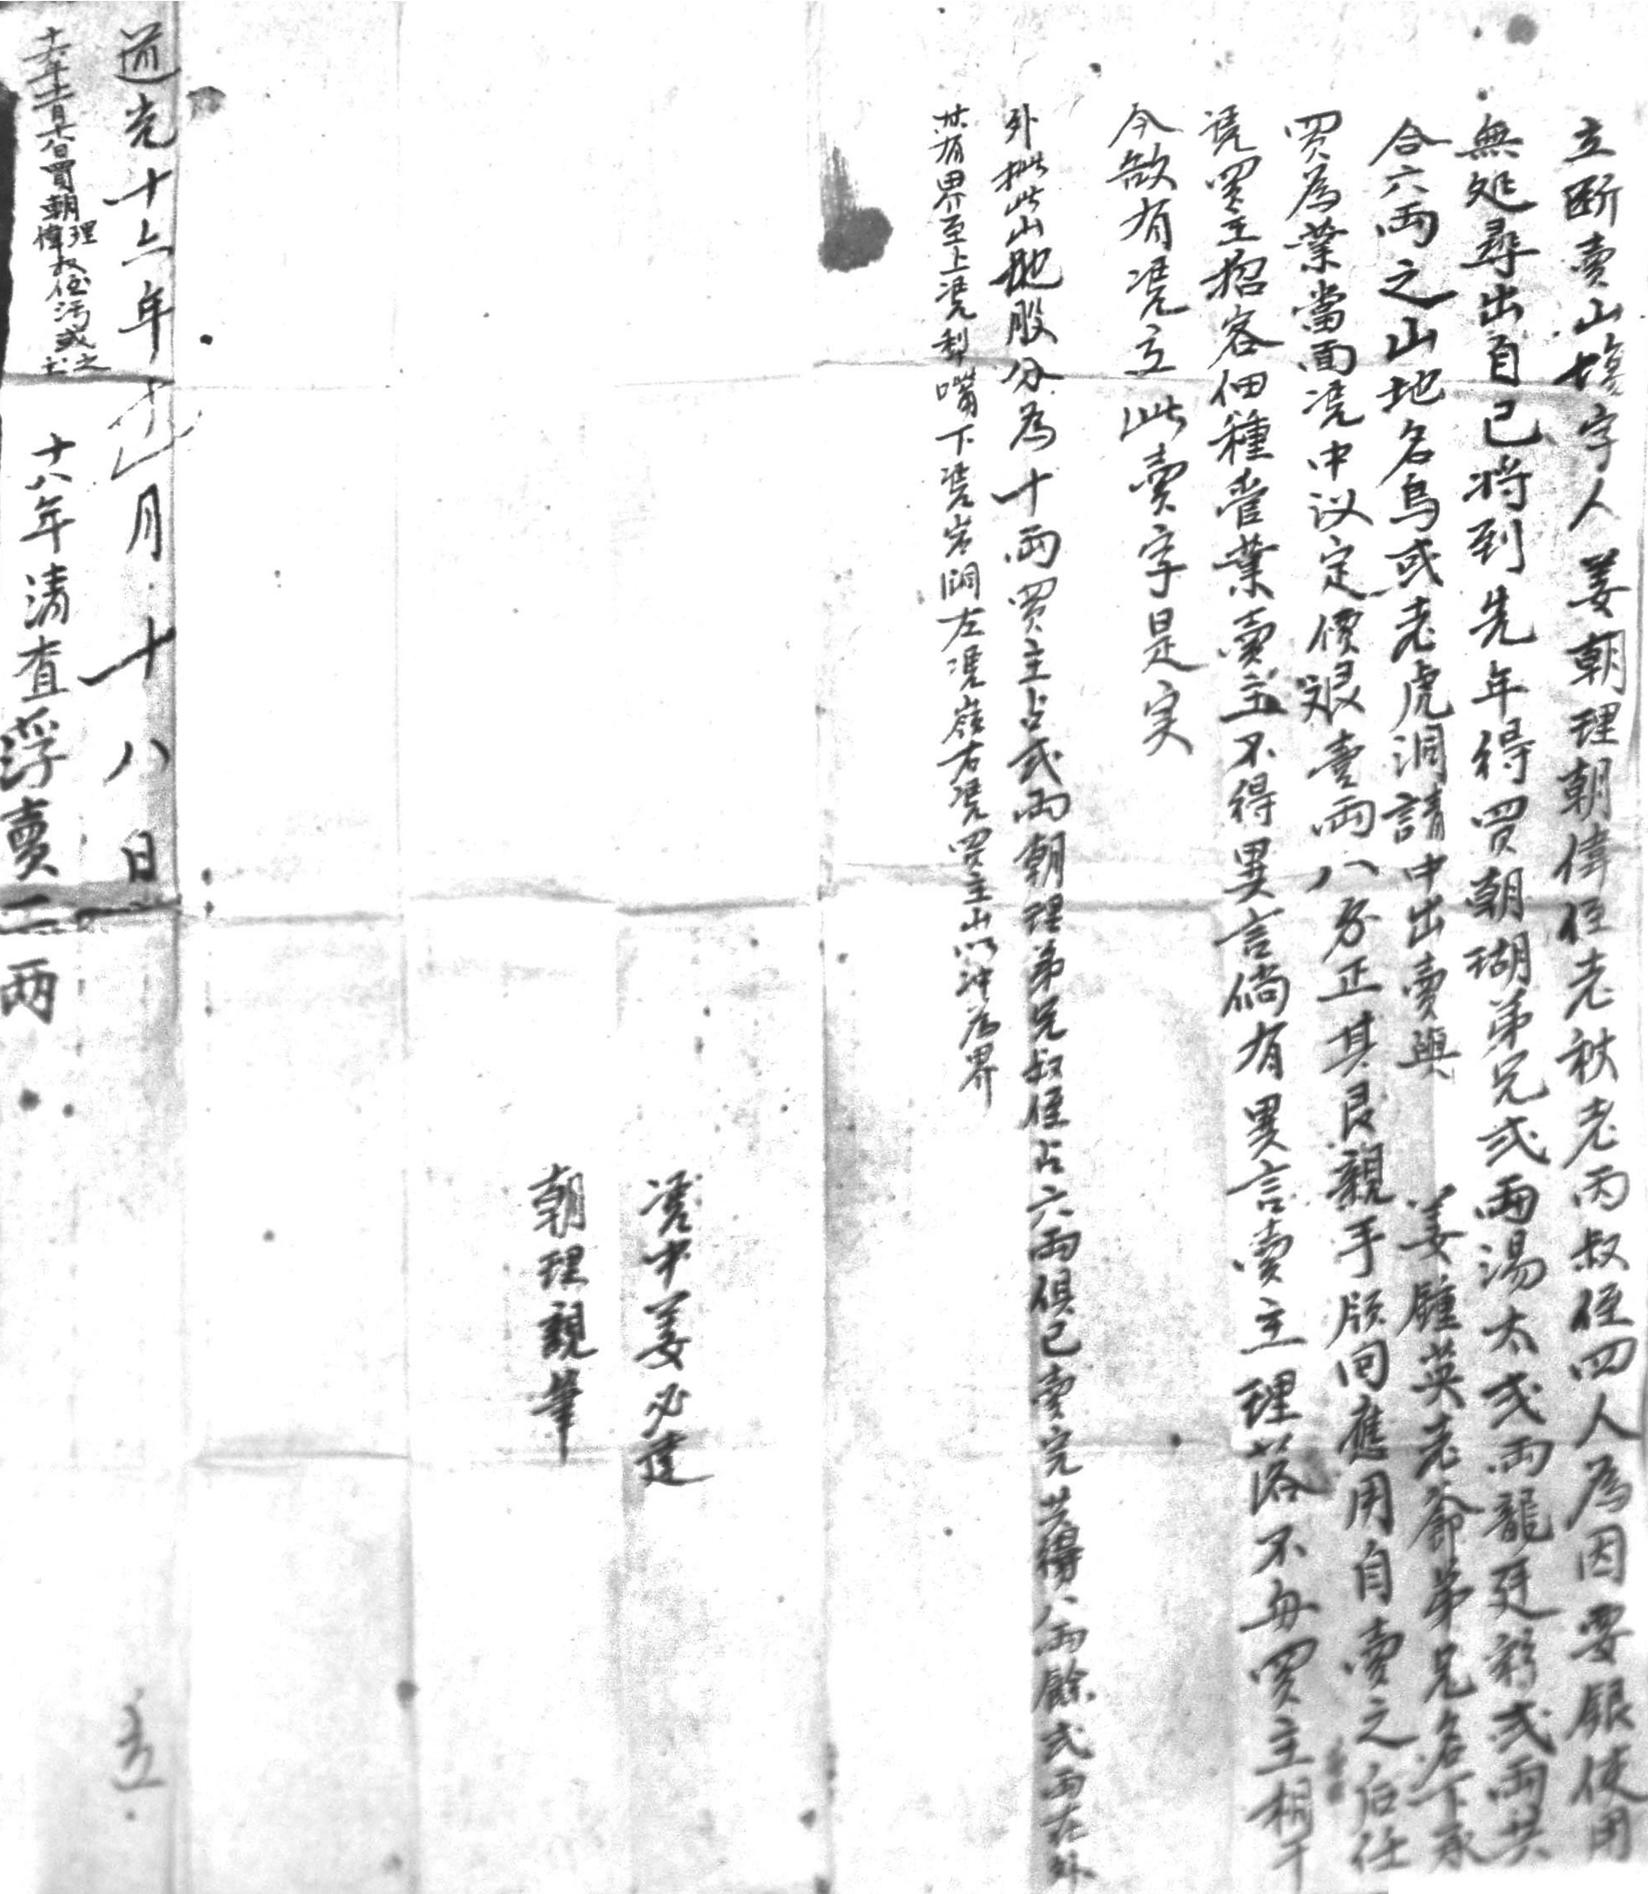 立断賣山塲字人姜朝理朝偉侄老秋老丙叔侄四人為因要銀使用
無处尋出自已将到先年得買朝瑚弟兄弍両湯太弍両龍廷彩弍両共
合六両之山地名烏或老虎洞請中出賣與 姜鍾英老爺弟兄名下承
買為業當面凴中议定價艮壹両八分正其艮親手領囘應用自賣之后任
凴買主招客佃種管業賣主不得異言倘有異言賣主理落不與買主相干
今欲有凴立此賣字是实
外批此山地股分為十両買主占弍両朝理弟兄叔侄占六両俱已賣完共得八両餘弍両在外
共有界至上凴犁嘴下凴岩洞左凴嶺右凴買主山以冲為界
凴中姜必達
朝理親筆
道光十六年十二月十八日 立
十六年十二月十八日買朝理偉叔侄污或之土
十八年清查浮賣二两